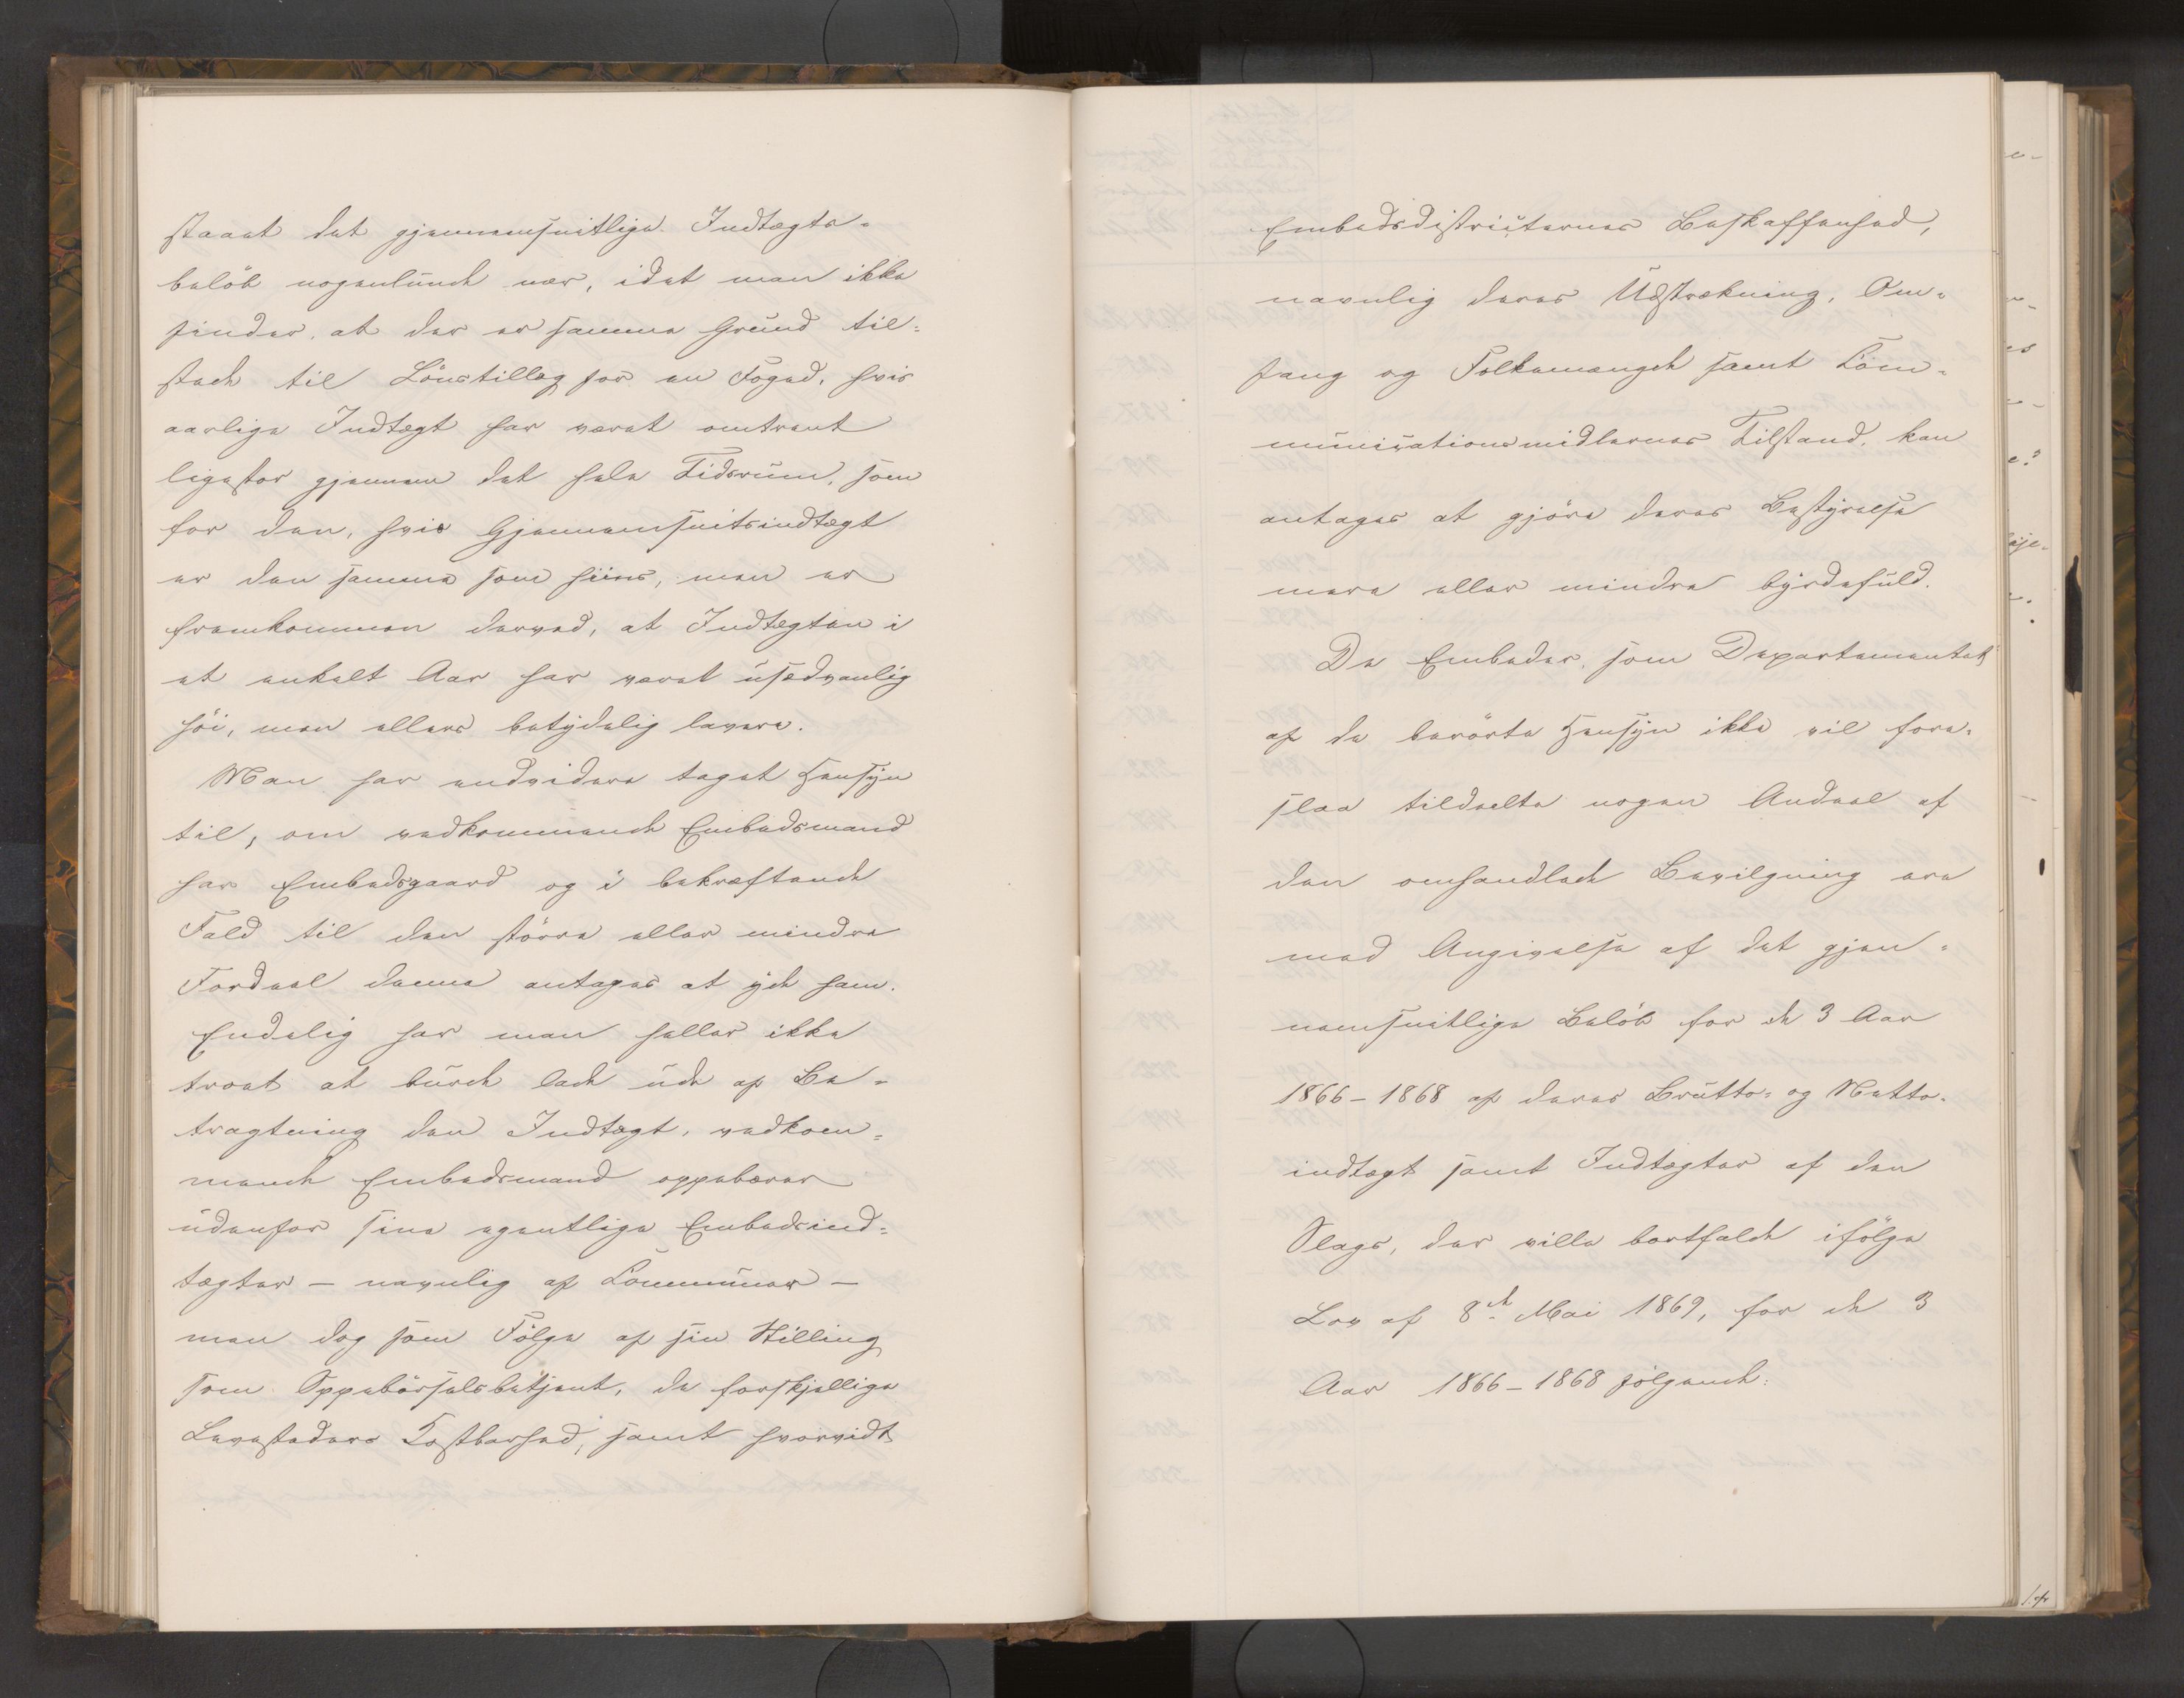 staaet det gjennemsnitlige Indtægts-
beløb nogenlunde nær, idet man ikke
finder, at der er samme Grund til-
stede til Lønstillæg for en Foged, hvis
aarlige Indtægt har været omtrent
ligestor gjennem det hele Tidsrum, som
for den, hvis Gjennemsnitsindtægt
er den samme som hiins, men er
fremkommen derved, at Indtægten i
et enkelt Aar har været usædvanlig
høi, men ellers betydelig lavere.
Man har endvidere taget Hensyn
til, om vedkommende Embedsmand
har Embedsgaard og i bekræftende
Fald til den større eller mindre
Fordeel denne antages at yde ham.
Endelig har man heller ikke
troet at burde lade ude af Be-
tragtning den Indtægt, vedkom-
mende Embedsmand oppebærer
udenfor sine egentlige Embedsind-
tægter – navnlig af Communer –
men dog som Følge af sin Stilling
som Oppebørselsbetjent, de forskjellige
Levesteders Kostbarhed, samt hvorvidt
Embedsdistricternes Beskaffenhed,
navnlig deres Udstrækning, Om-
fang og Folkemængde samt Com-
municationsmidlernes Tilstand, kan
antages at gjøre deres Bestyrelse
mere eller mindre byrdefuld.
De Embeder, som Departementet
af de berørte Hensyn ikke vil fore-
slaa tildeelte nogen Andeel af
den omhandlede Bevilgning ere
med Angivelse af det gjen-
nemsnitlige Beløb for de 3 Aar
1866–1868 af deres Brutto- og Netto-
indtægt samt Indtægter af den
Slags, der ville bortfalde ifølge
Lov af 8de Mai 1869, for de 3
Aar 1866–1868 følgende: